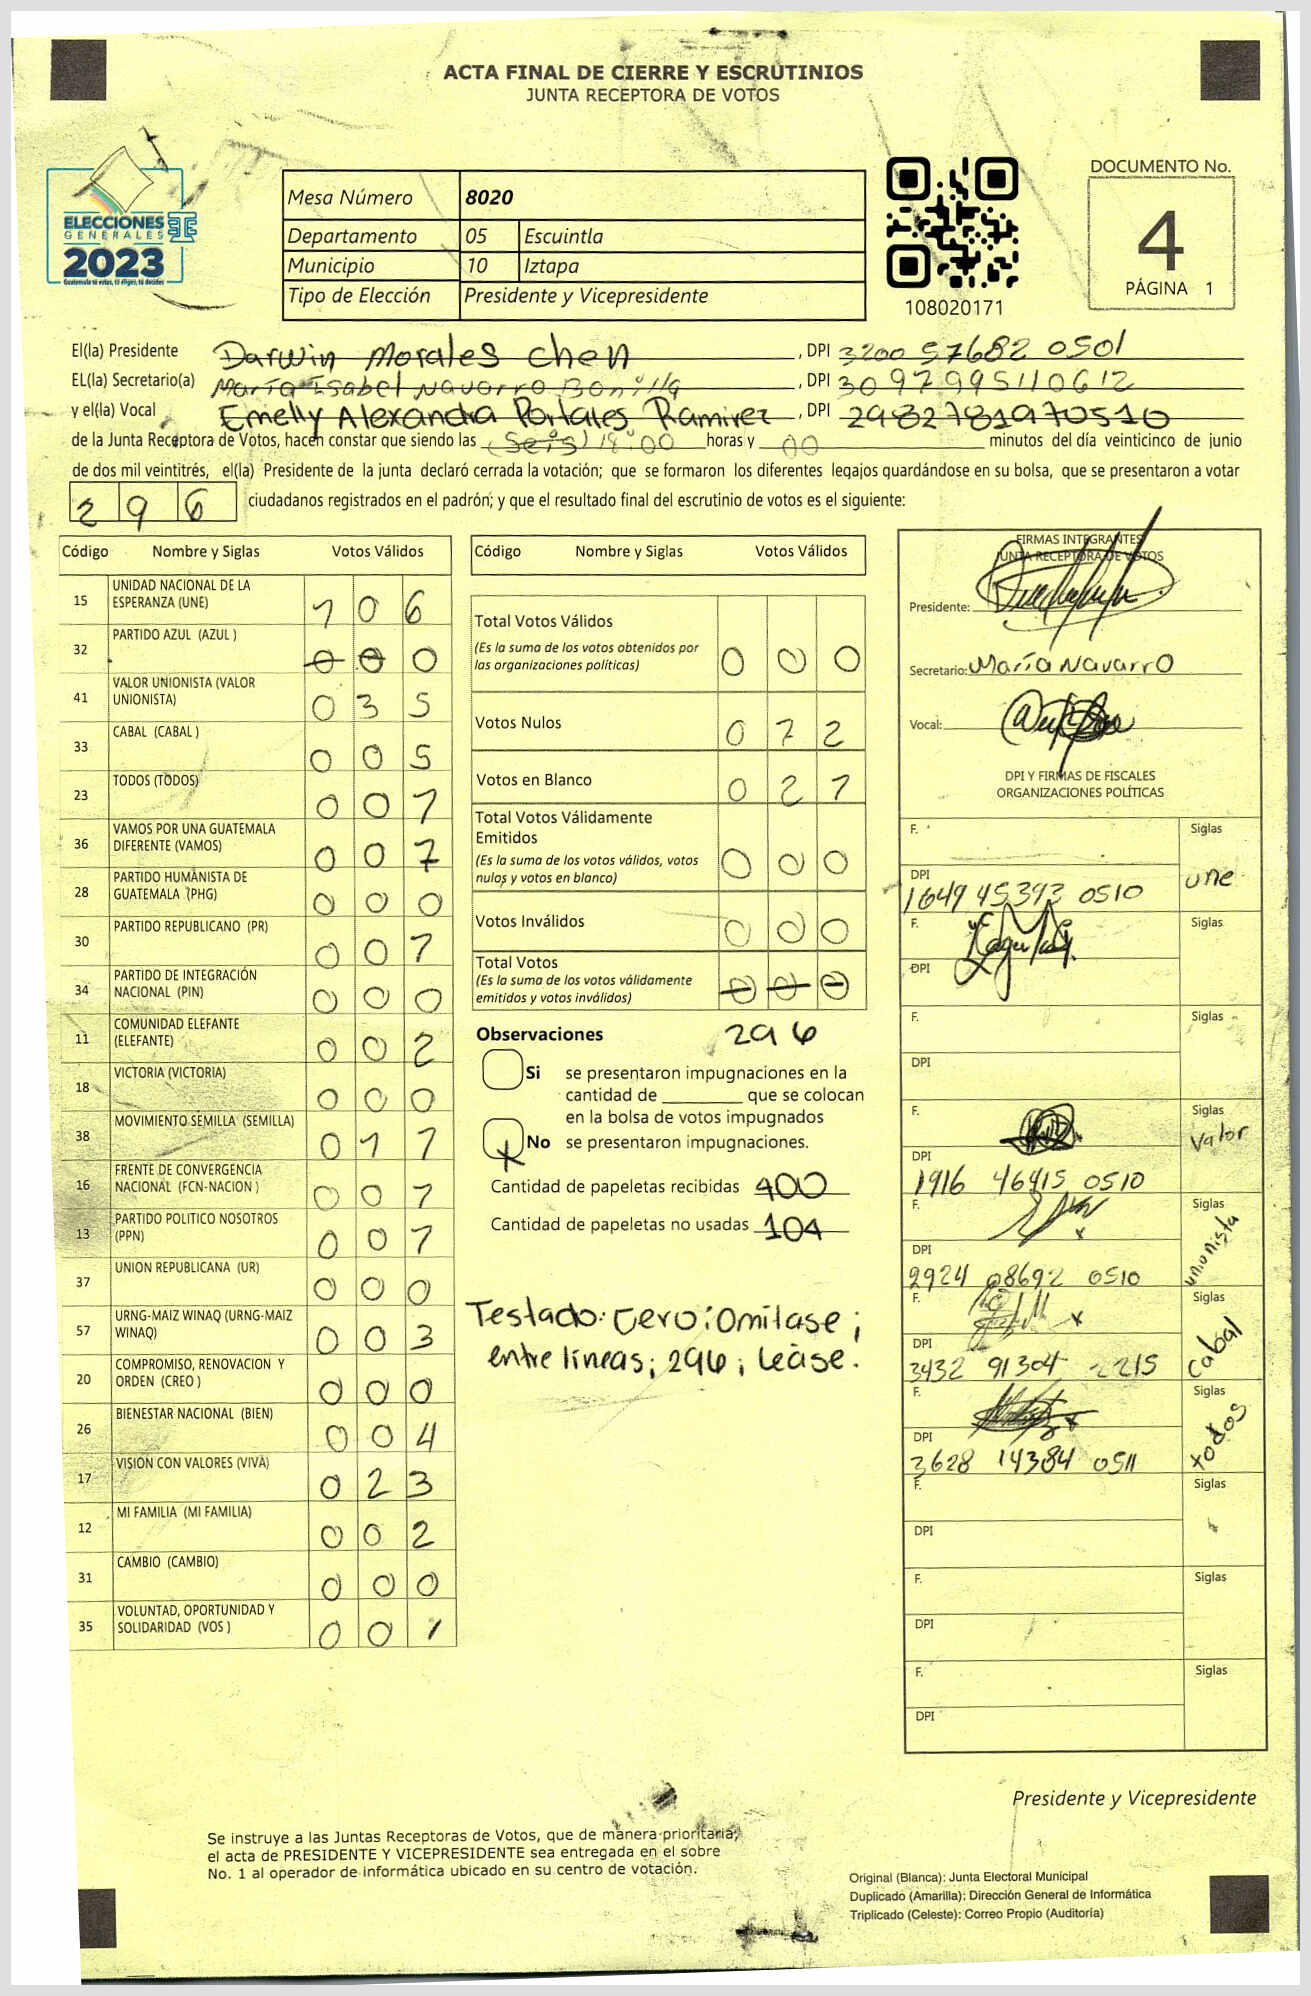 ACTA FINAL DE CIERRE Y ESCRUTINIOS
JUNTA RECEPTORA DE VOTOS
ELECCIONES
GENERALES
2023
Guatemala tú votas, tú eliges, tú decides
Mesa Número 8020
Departamento 05 Escuintla
Municipio 10 Iztapa
Tipo de Elección Presidente y Vicepresidente
108020171
DOCUMENTO No.
4
PÁGINA 1
El(la) Presidente Darwin Morales Chen , DPI 3200 57682 0501
EL(la) Secretario(a) María Isabel Navarro Bonilla , DPI 3097995110612
y el(la) Vocal Emelly Alexandra Portales Ramirez , DPI 2982781970510
de la Junta Receptora de Votos, hacen constar que siendo las (Seis) 18:00 horas y 00 minutos del día veinticinco de junio
de dos mil veintitrés, el(la) Presidente de la junta declaró cerrada la votación; que se formaron los diferentes legajos guardándose en su bolsa, que se presentaron a votar
296 ciudadanos registrados en el padrón; y que el resultado final del escrutinio de votos es el siguiente:
Código Nombre y Siglas Votos Válidos
15 UNIDAD NACIONAL DE LA ESPERANZA (UNE) 1 0 6
32 PARTIDO AZUL (AZUL ) 0 0 0
41 VALOR UNIONISTA (VALOR UNIONISTA) 0 3 5
33 CABAL (CABAL ) 0 0 5
23 TODOS (TODOS) 0 0 1
36 VAMOS POR UNA GUATEMALA DIFERENTE (VAMOS) 0 0 7
28 PARTIDO HUMANISTA DE GUATEMALA (PHG) 0 0 0
30 PARTIDO REPUBLICANO (PR) 0 0 1
34 PARTIDO DE INTEGRACIÓN NACIONAL (PIN) 0 0 0
11 COMUNIDAD ELEFANTE (ELEFANTE) 0 0 2
18 VICTORIA (VICTORIA) 0 0 0
38 MOVIMIENTO SEMILLA (SEMILLA) 0 1 1
16 FRENTE DE CONVERGENCIA NACIONAL (FCN-NACION ) 0 0 1
13 PARTIDO POLITICO NOSOTROS (PPN) 0 0 1
37 UNION REPUBLICANA (UR) 0 0 0
57 URNG-MAIZ WINAQ (URNG-MAIZ WINAQ) 0 0 3
20 COMPROMISO, RENOVACION Y ORDEN (CREO ) 0 0 0
26 BIENESTAR NACIONAL (BIEN) 0 0 4
17 VISION CON VALORES (VIVA) 0 2 3
12 MI FAMILIA (MI FAMILIA) 0 0 2
31 CAMBIO (CAMBIO) 0 0 0
35 VOLUNTAD, OPORTUNIDAD Y SOLIDARIDAD (VOS ) 0 0 1
Código Nombre y Siglas Votos Válidos
Total Votos Válidos
(Es la suma de los votos obtenidos por
las organizaciones políticas) 0 0 0
Votos Nulos 0 7 2
Votos en Blanco 0 2 1
Total Votos Válidamente
Emitidos
(Es la suma de los votos válidos, votos
nulos y votos en blanco) 0 0 0
Votos Inválidos 0 0 0
Total Votos
(Es la suma de los votos válidamente
emitidos y votos inválidos) 0 0 0
Observaciones 296
Si se presentaron impugnaciones en la
cantidad de ________ que se colocan
en la bolsa de votos impugnados
x No se presentaron impugnaciones.
Cantidad de papeletas recibidas 400
Cantidad de papeletas no usadas 104
Testado: Cero: Omítase;
entre líneas; 296; Léase.
FIRMAS INTEGRANTES
JUNTA RECEPTORA DE VOTOS
Presidente:
Secretario: María Navarro
Vocal:
DPI Y FIRMAS DE FISCALES
ORGANIZACIONES POLÍTICAS
F. Siglas
DPI une
1649 45393 0510
F. Siglas
DPI
F. Siglas
DPI
F. Siglas
DPI Valor
1916 46415 0510
F. Siglas
DPI unionista
2924 08692 0510
F. Siglas
DPI cabal
3432 91304 2215
F. Siglas
DPI todos
3628 14384 0511
F. Siglas
DPI
F. Siglas
DPI
F. Siglas
DPI
Presidente y Vicepresidente
Se instruye a las Juntas Receptoras de Votos, que de manera prioritaria,
el acta de PRESIDENTE Y VICEPRESIDENTE sea entregada en el sobre
No. 1 al operador de informática ubicado en su centro de votación.
Original (Blanca): Junta Electoral Municipal
Duplicado (Amarilla): Dirección General de Informática
Triplicado (Celeste): Correo Propio (Auditoría)